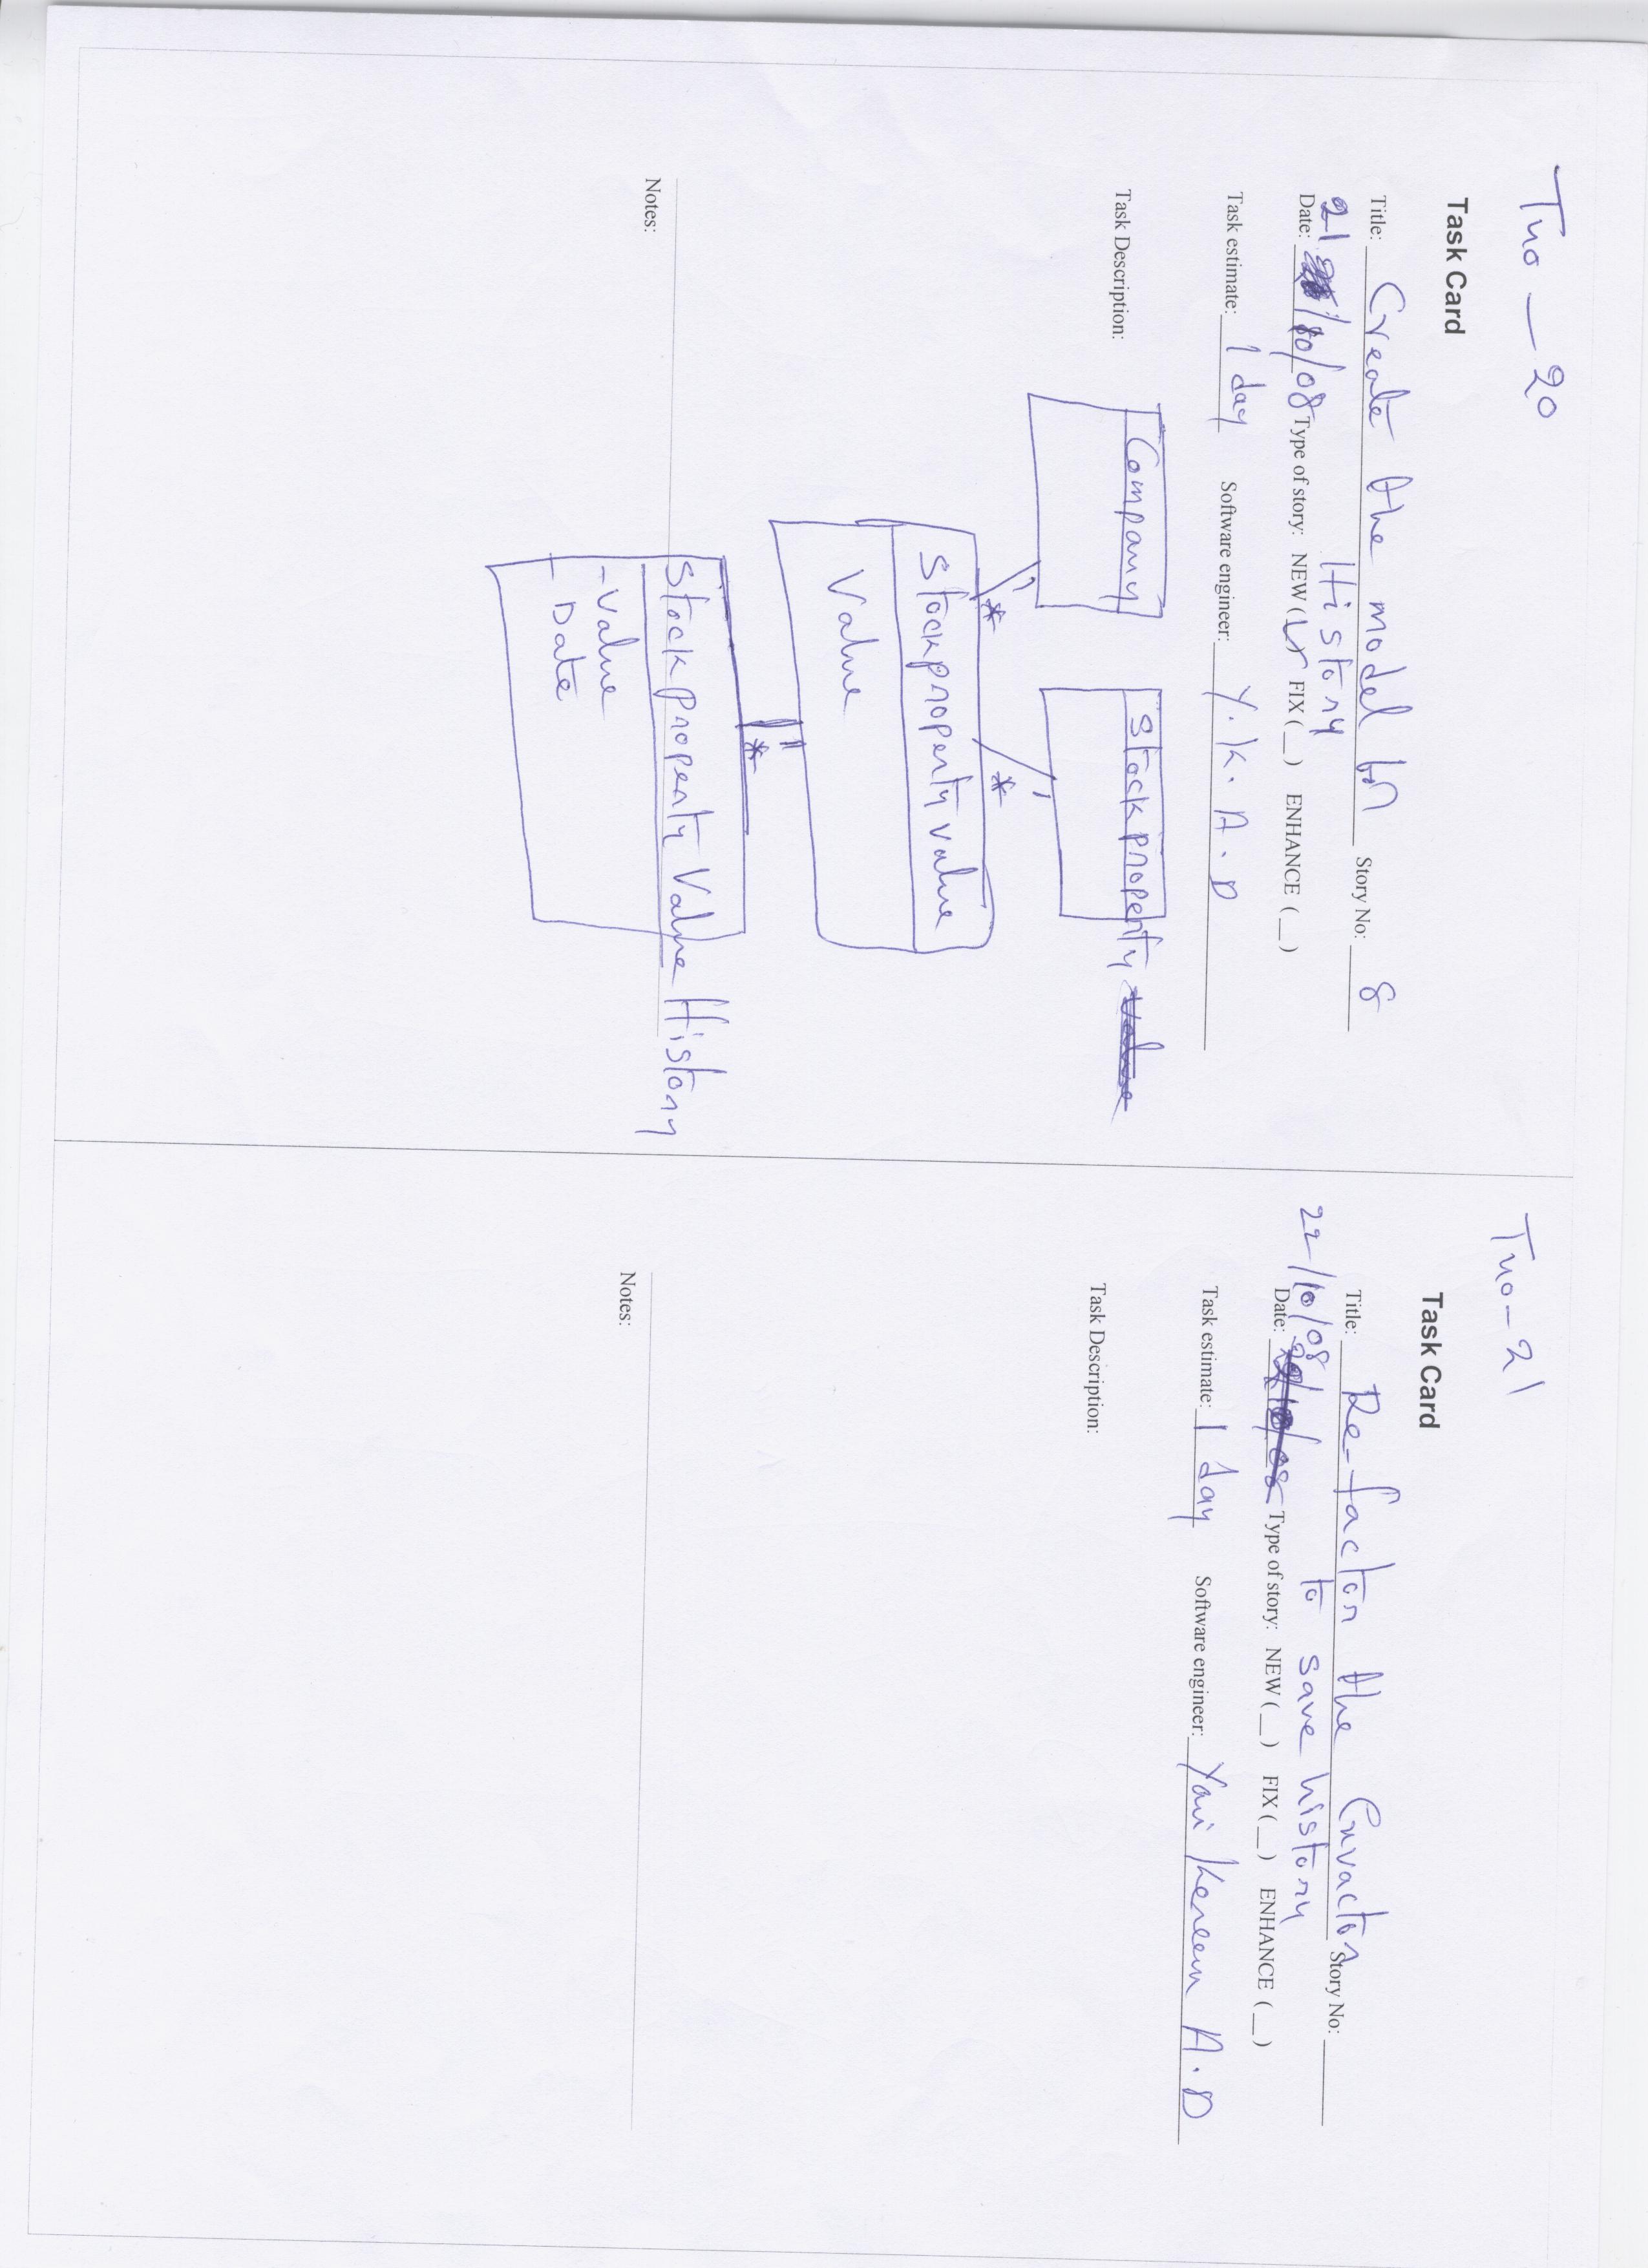 Tno_20
Task Card
Title: Create the model for Story No: 8
History
21
Date: /10/08 Type of story: NEW ( FIX (__) ENHANCE (__)
Task estimate: 1 day Software engineer: Y. K. A. D
Task Description:
Company
Stockproperty value
*
*
Stockproperty value
Value
*
Stock property Value History
-Value
- Date
Notes:
Tno_21
Task Card
Title: Re-factor the Story No:
to save history
22/10/08
Date: 22/10/08 Type of story: NEW (__) FIX (__) ENHANCE (__)
Task estimate: 1 day Software engineer: A.D
Task Description:
Notes: